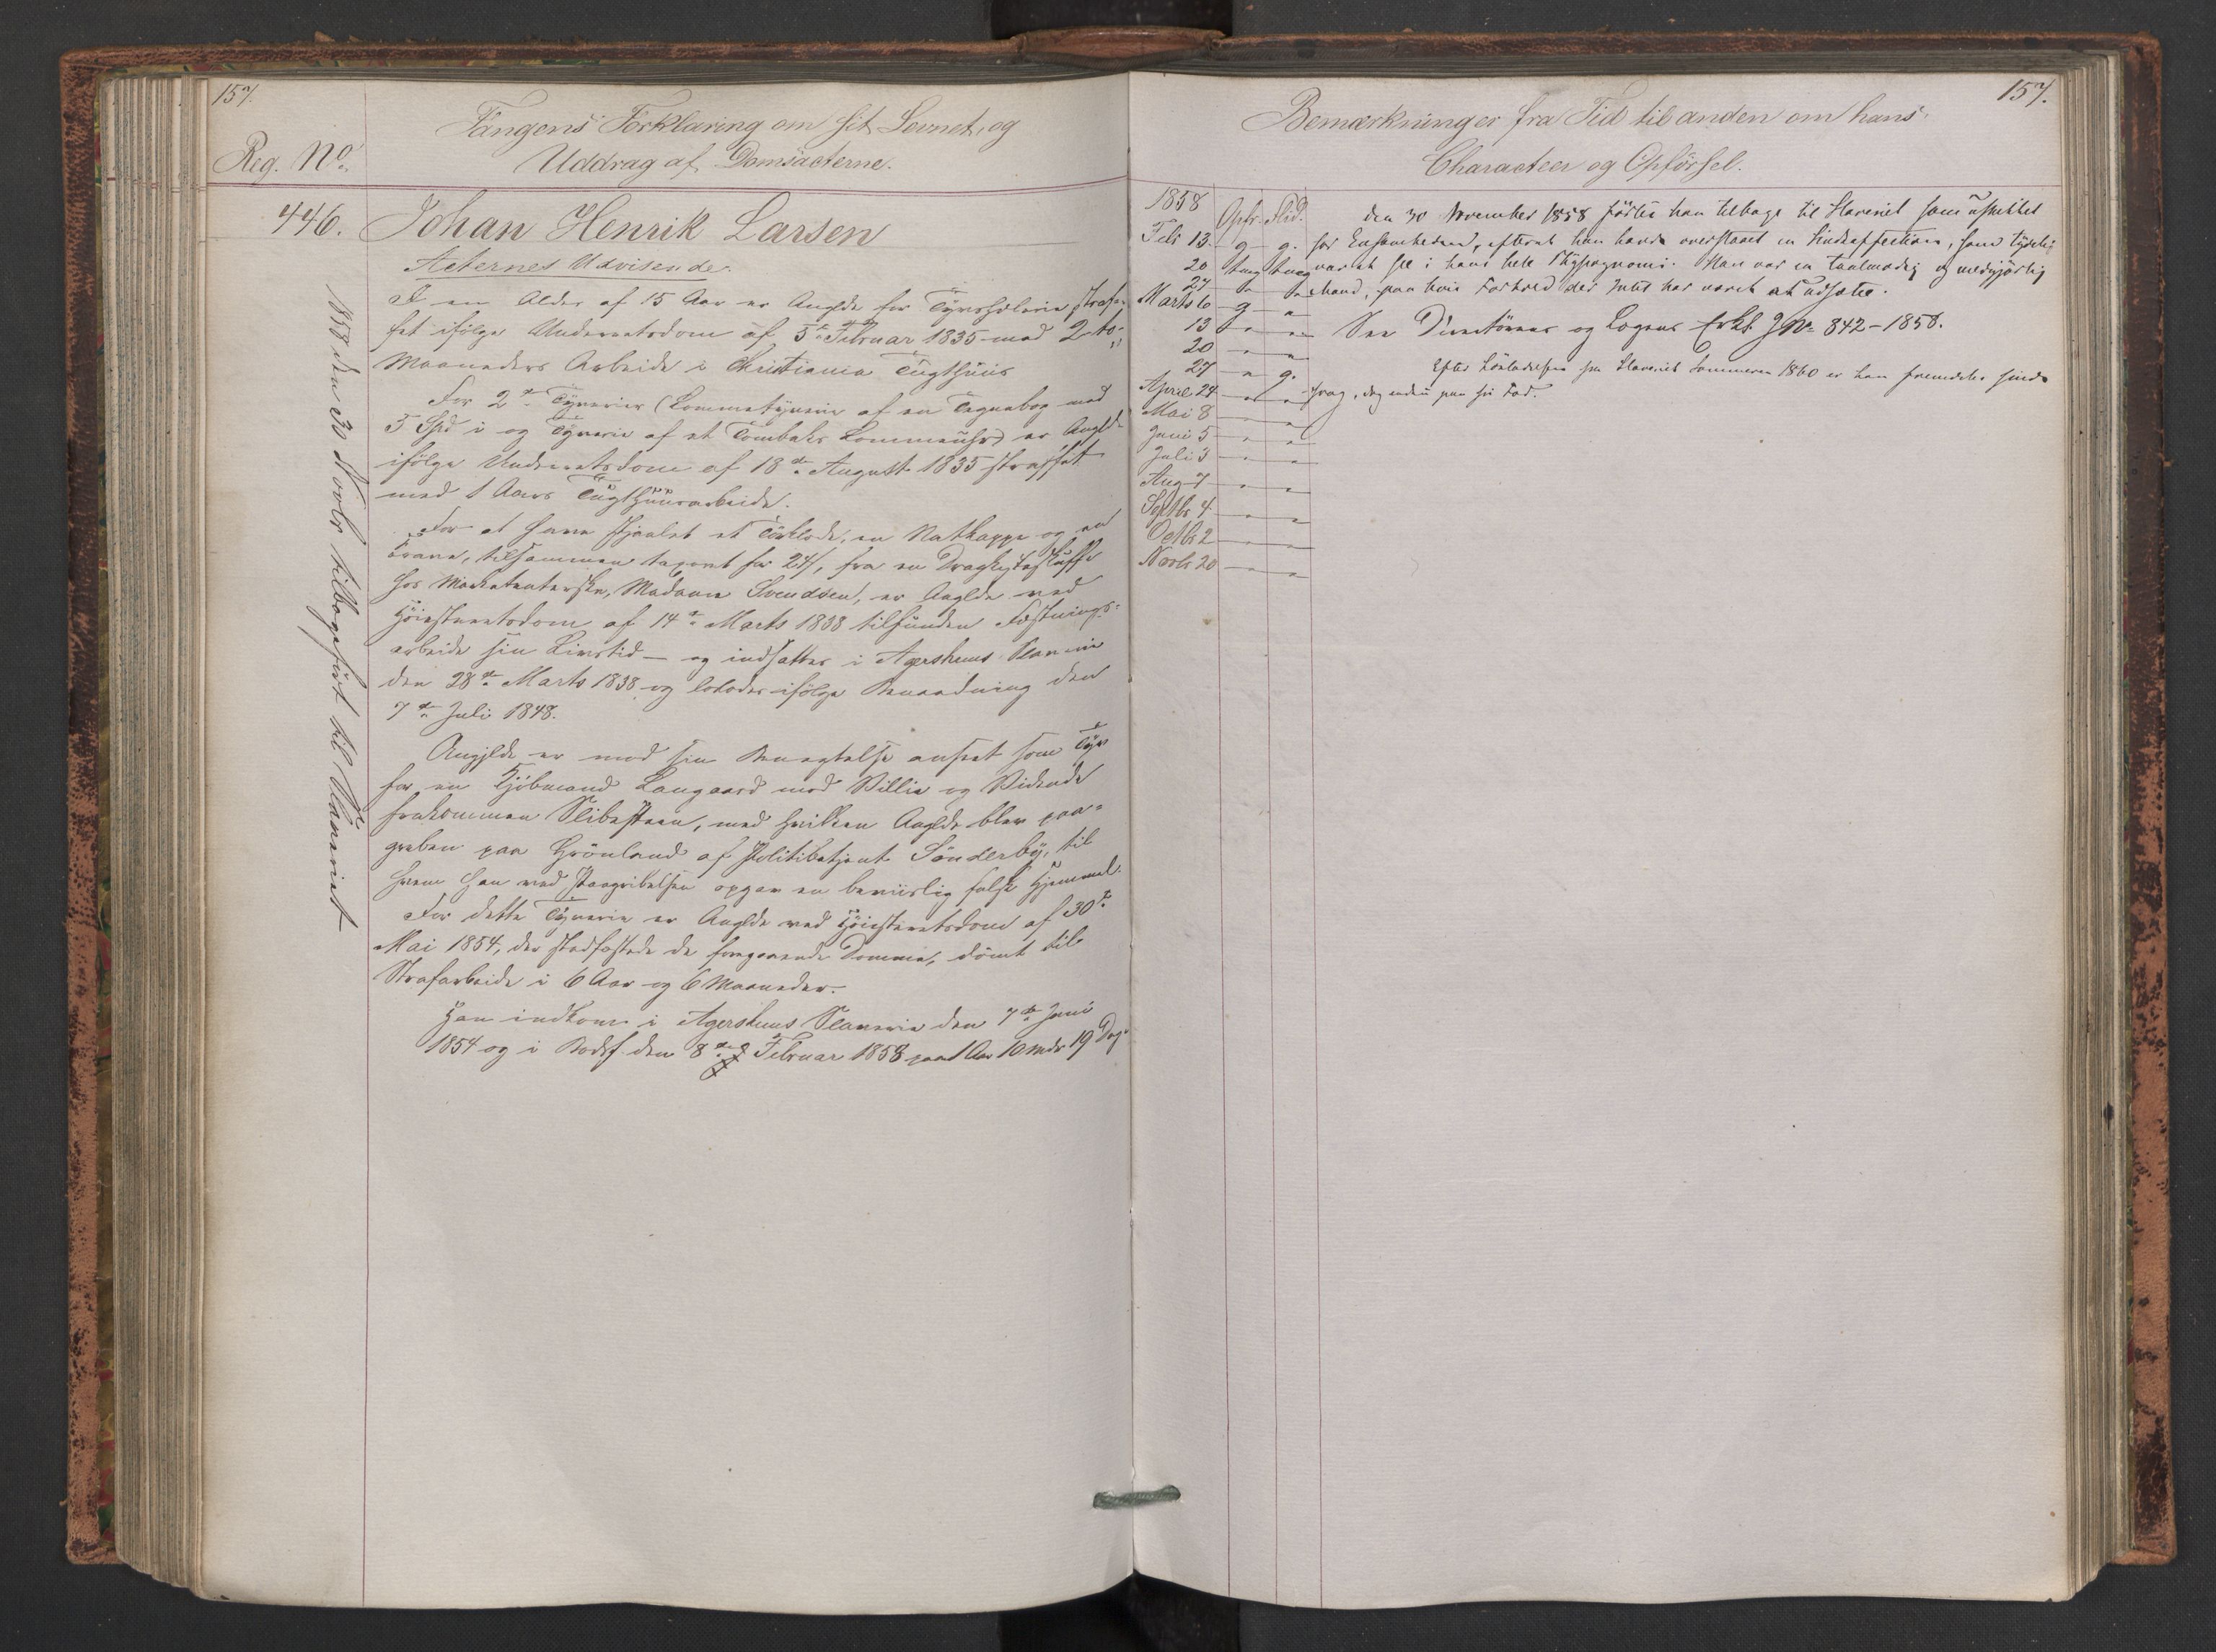 157.
Reg. No.
Fangens Forklaring om sit Levnet, og
Uddrag af Domsacterne.
446.
Johan Henrik Larsen
Acternes Udvisende.
I en Alder af 15 Aar er Anglde for Tyvshæleri straf-
fet ifølge Underretsdom af 5te Februar 1835 med 2 to
Maaneders Arbeide i Christiania Tugthuus
For 2de Tyverier (Lommetyveri af en Tegnebog med
5 Spd i og Tyveri af et Tombaks Lommeuhr) er Anglde
ifølge Underretsdom af 18de August 1835 straffet
med 1 Aars Tugthuusarbeide.
For at have stjaalet et Tørklæde, en Nathappe og en
, tilsammen taxeret for 24 s, fra en Dragkisteskuffe
hos Marketenterske, Madame Svendsen, er Anglde ved
Høiesteretsdom af 14de Marts 1838 tilfunden Fæstnings-
arbeide sin Livstid — og indsattes i Agershuus Slaverie
den 28de Marts 1838 og løslodes ifølge Benaadning den
7de Juli 1848.
Angjlde er mod sin Benægtelse anseet som Tyv
for en Kjøbmand Langaard mod Villie og Vidende
frakommen Slibesteen, med hvilken Anglde blev paa-
greben paa Grønland af Politibetjent Sønderby, til
hvem han ved Paagribelsen opgav en beviislig falsk Hjemmel.
For dette Tyverie er Anglde ved Høiesteretsdom af 30te
Mai 1854, der stadfæstede de foregaaende Domme, dømt til
Strafarbeide i 6 Aar og 6 Maaneder.
Han indkom i Agershuus Slaverie den 7de Juni
1854 og i Bodsf. den 8de Februar 1858 paa 1 Aar 10 Mdr 19 Dage
1858 den 30 Novbr tilbageført til Slaveriet
157.
Bemærkninger fra Tid til anden om hans
Characteer og Opførsel.
1858
Opfr. Flid.
Feb 13. g g.
20 tmg tmg
27 " "
Marts 6 g "
13 " "
20 " "
27 " g.
April 24 " "
Mai 8 " "
Juni 5 " "
Juli 3 " "
Aug 7 " "
Septbr 4 " "
Octbr 2 " "
Novbr 20 " "
Den 30 November 1858 førtes han tilbage til Slaveriet som uskikket
for Ensomheden, efterat han havde overstaaet en Sindsaffection, som tydelig
var at see i hans hele Physiognomi. Han var en taalmodig og medgjørlig
Mand, paa hvis Forhold der Intet har været at udsætte.
See Directørens og Lægens Erkl. J No 842-1858.
Efter Løsladelsen fra Slaveriet Sommeren 1860 er han fremdeles sinds
svag, dog endnu paa fri Fod.